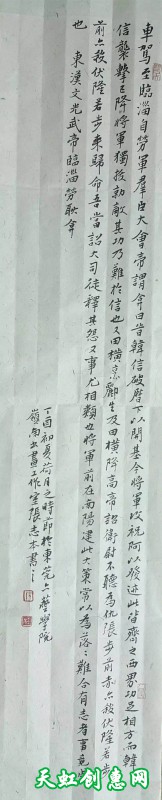 車駕至臨淄自勞軍羣臣大會帝謂弇曰昔韓信破歷下以開基今將軍攻祝阿以發迹此皆齊之西界功足相方而韓
信襲擊已降將軍獨拔勍敵其功乃難於信也又田橫烹酈生及田橫降高帝詔衛尉不聽為仇張步前亦殺伏隆若步
前亦殺伏隆若步來歸命吾當詔大司徒釋其怨又事尤相類也將軍前在南陽建此大策常以為落落難合有志者事竟成
也 東漢文光武帝臨淄勞耿弇
丁酉初夏荷月之時節於東莞
嶺南書畫工作室張志本書
天虹创惠网